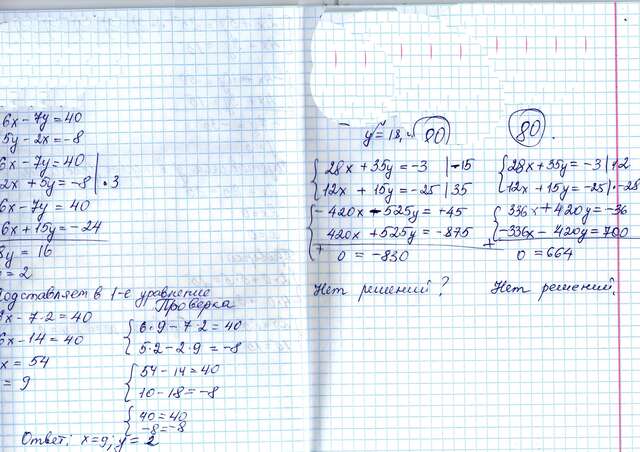 6x - 7y = 40
5y - 2x = -8
6x - 7y = 40
2x + 5y = -8 | • 3
6x - 7y = 40
6x + 15y = -24
8y = 16
= 2
Подставляет в 1-е уравнение
x - 7·2 = 40
6x - 14 = 40
x = 54
= 9
Проверка
6·9 - 7·2 = 40
5·2 - 2·9 = -8
54 - 14 = 40
10 - 18 = -8
40 = 40
-8 = -8
Ответ: x = 9; y = 2
80
28x + 35y = -3 | -15
12x + 15y = -25 | 35
-420x - 525y = +45
420x + 525y = -875
0 = -830
Нет решений?
28x + 35y = -3 | 12
12x + 15y = -25 | • -28
336x + 420y = -36
-336x - 420y = 700
0 = 664
Нет решений.